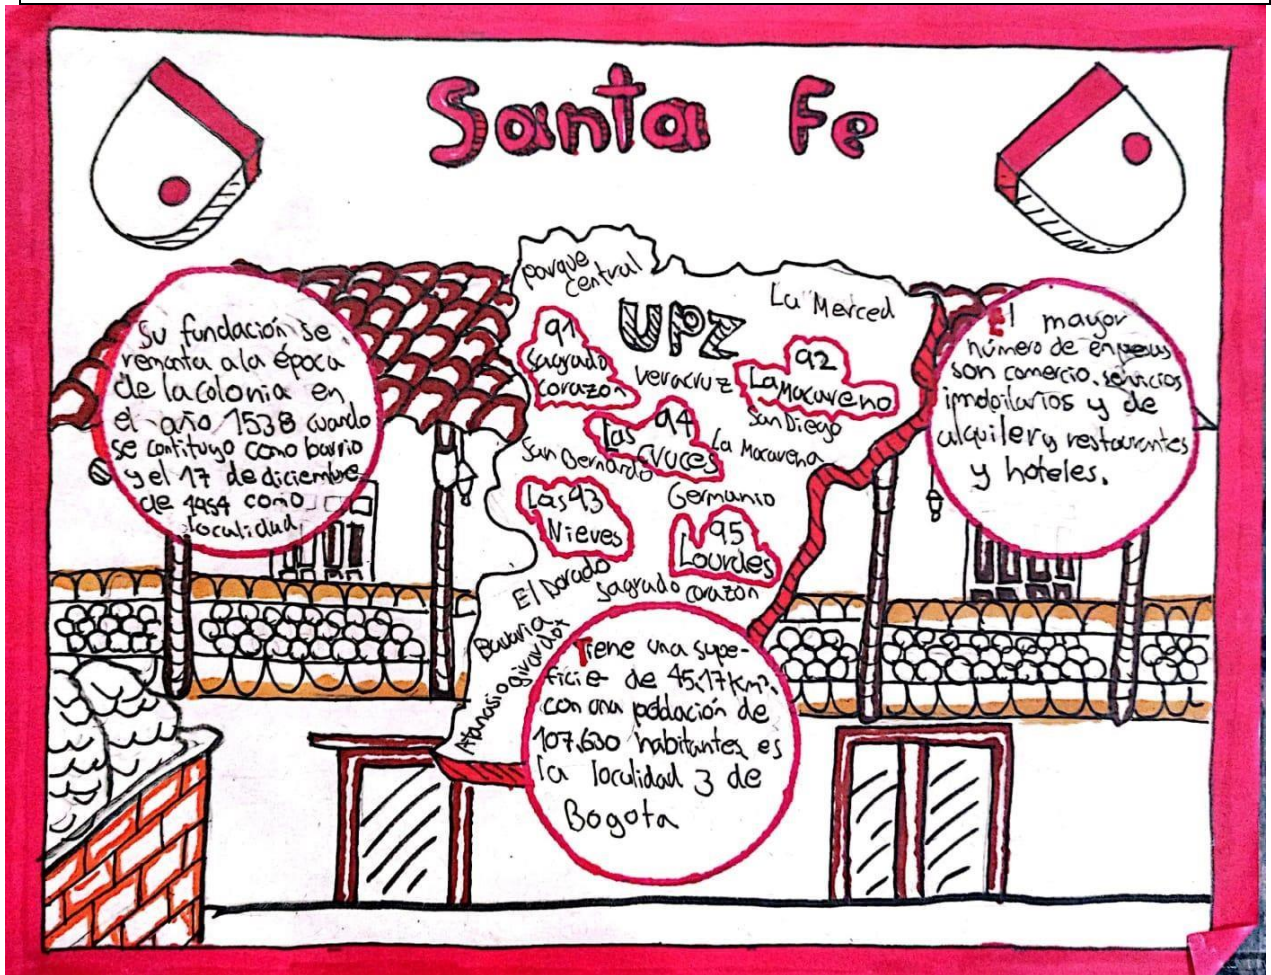 Santa Fe
Su fundación se
remonta a la época
de la colonia en
el año 1538 cuando
se contituyo como barrio
y el 17 de diciembre
de 1954 como
localidad
parque
central
UPZ
La Merced
91
Sagrado
corazón
Veracruz
92
La Macareno
San Diego
94
Las Cruces
La Macarena
San Bernardo
Las 93
Nieves
Germanio
95
Lourdes
El Dorado
Sagrado corazón
Bavaria
Atanasio girardot
El mayor
número de
son comercio, servicios
imobiliarios y de
alquiler y restaurantes
y hoteles.
Tiene una supe-
ficie de 45.17 km²,
con una población de
107.630 habitantes es
la localidad 3 de
Bogota